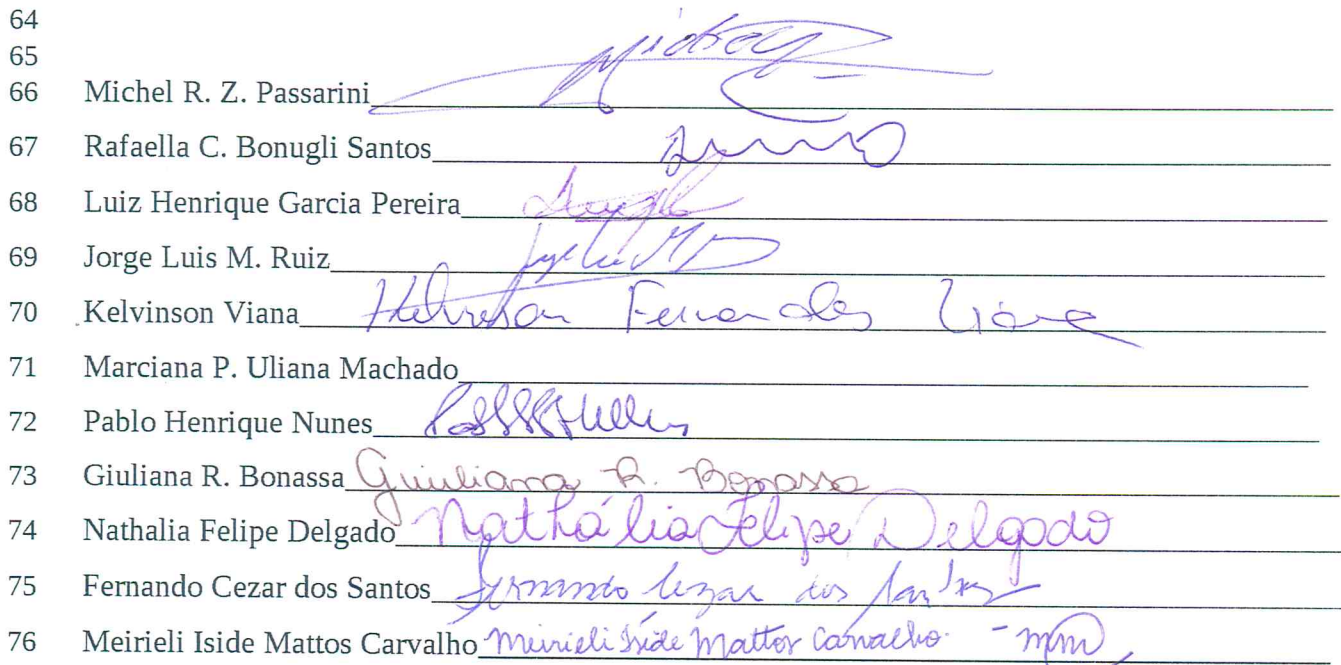 64
65
66 Michel R. Z. Passarini
67 Rafaella C. Bonugli Santos
68 Luiz Henrique Garcia Pereira
69 Jorge Luis M. Ruiz
70 Kelvinson Viana Kelvinson Fernandes Viana
71 Marciana P. Uliana Machado
72 Pablo Henrique Nunes
73 Giuliana R. Bonassa Giuliana R. Bonassa
74 Nathalia Felipe Delgado Nathália Felipe Delgado
75 Fernando Cezar dos Santos Fernando Cezar dos Santos
76 Meirieli Iside Mattos Carvalho Meirieli Iside Mattos Carvalho - mm